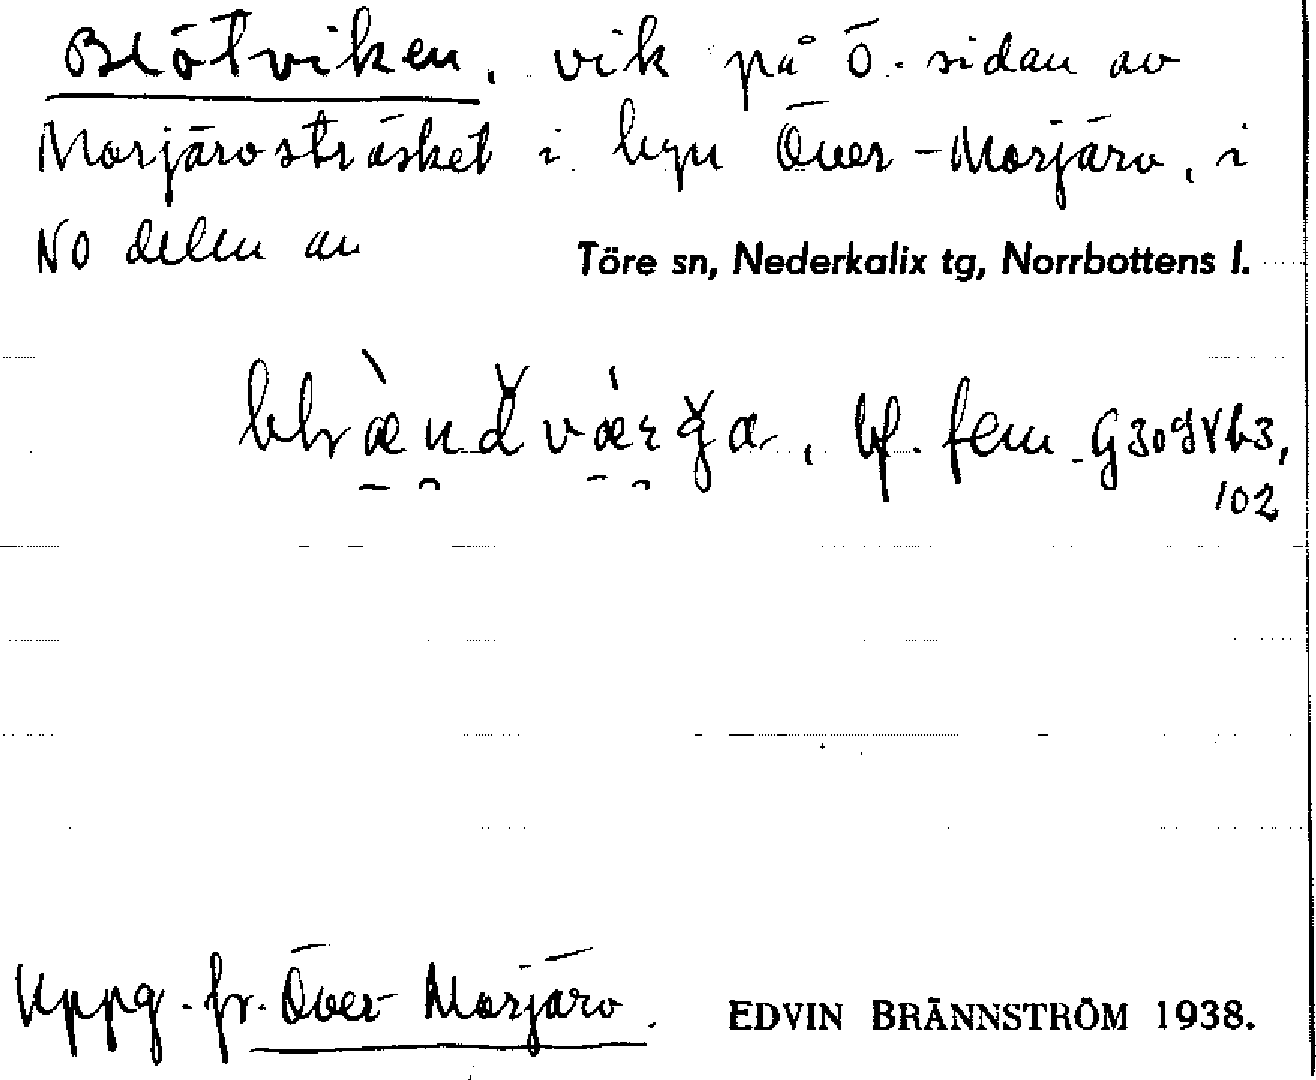 Blötviken, vik på ö. sidan av
Morjärvsträsket i byn Över-Morjärv, i
NO delen av
Töre sn, Nederkalix tg, Norrbottens l.
bf. fem G30g8b3,
102
Uppg. fr. Över Morjärv.
EDVIN BRÄNNSTRÖM 1938.